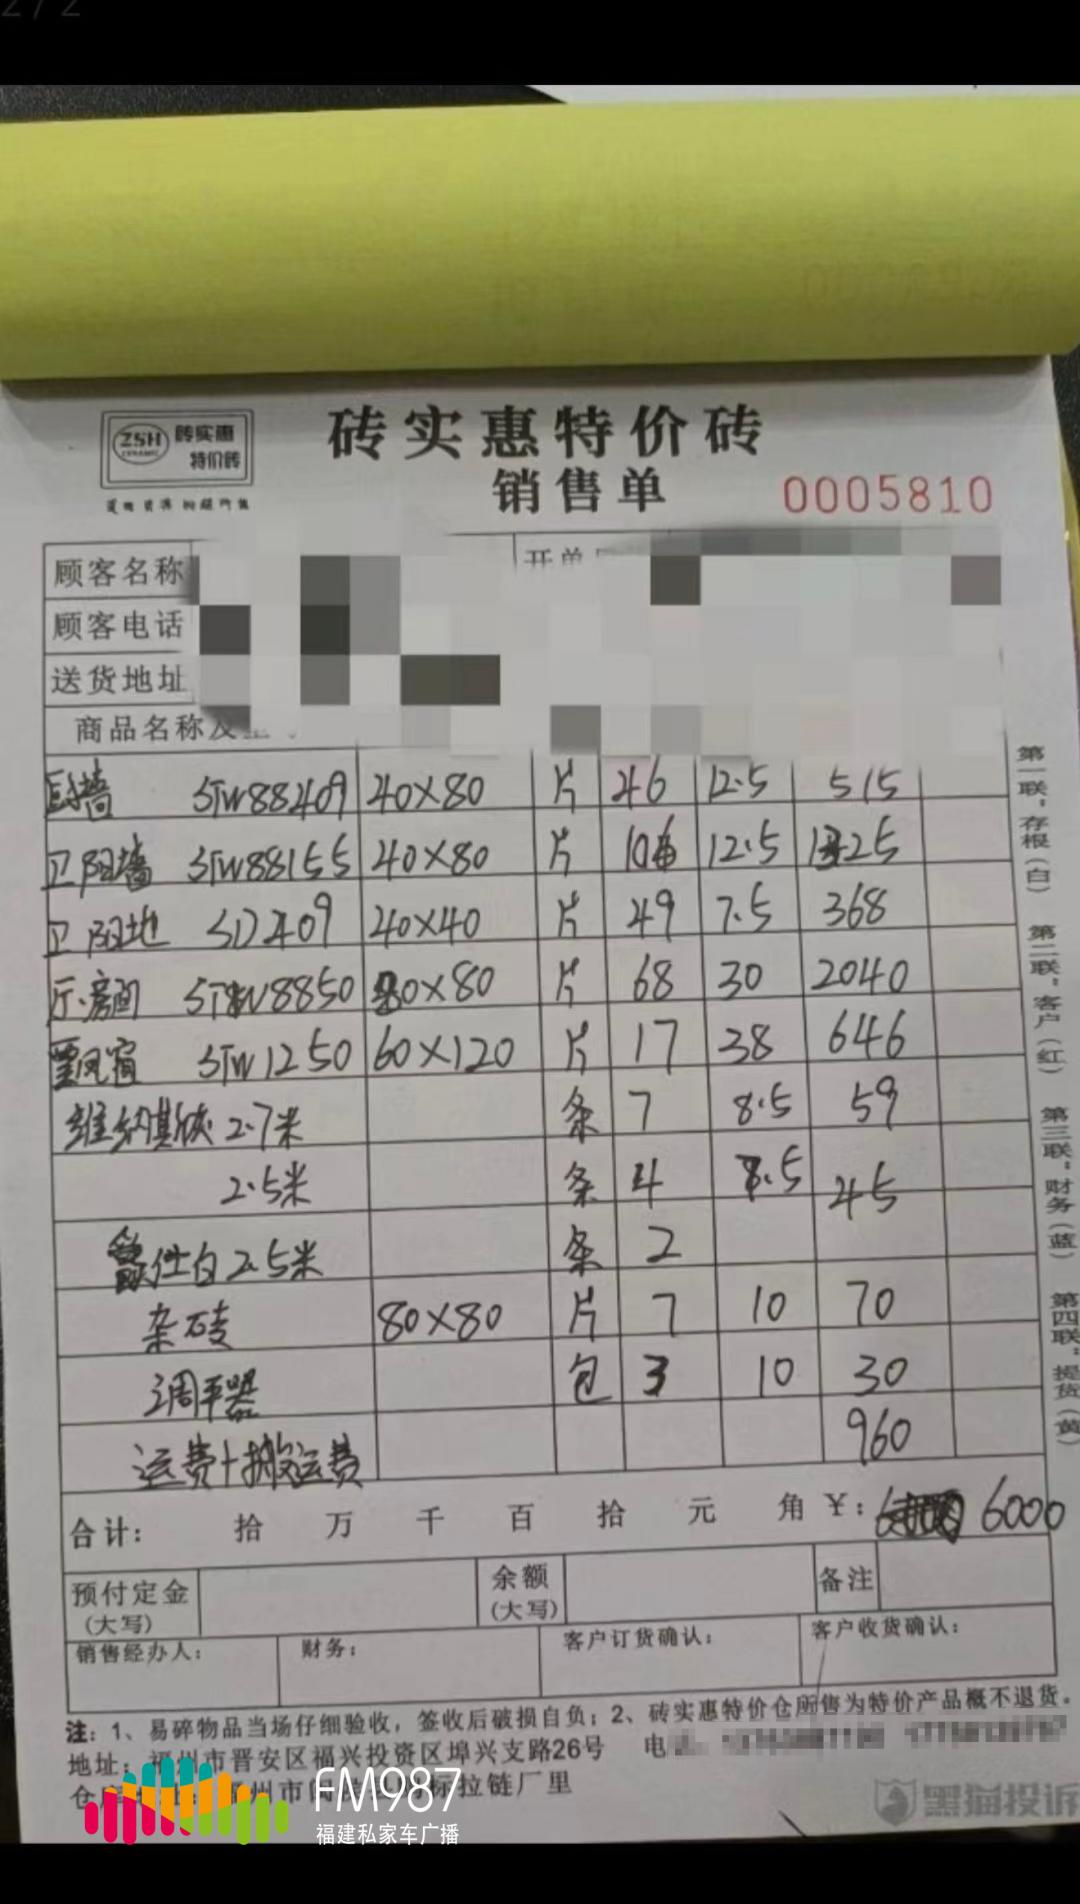 2/2
ZSH 砖实惠
CERAMIC 特价砖
砖实惠特价砖
销售单 0005810
顾客名称 开单
顾客电话
送货地址
商品名称及
厨墙 STW88409 40×80 片 46 12.5 515
卫阳墙 STW88155 40×80 片 106 12.5 1325
卫阳地 SD409 40×40 片 49 7.5 368
厅.房间 STW8850 80×80 片 68 30 2040
STW1250 60×120 片 17 38 646
维纳斯灰 2.7米 条 7 8.5 59
2.5米 条 4 7.5 45
仕白 2.5米 条 2
杂砖 80×80 片 7 10 70
调平器 包 3 10 30
运费+搬运费 960
合计: 拾 万 千 百 拾 元 角 ¥: 6000
预付定金 余额 备注
(大写) (大写)
销售经办人: 财务: 客户订货确认: 客户收货确认:
注: 1、易碎物品当场仔细验收,签收后破损自负; 2、砖实惠特价仓所售为特价产品概不退货。
地址: 福州市晋安区福兴投资区埠兴支路26号 电
仓 州市闽 标拉链厂里
第一联:存根(白)
第二联:客户(红)
第三联:财务(蓝)
第四联:提货(黄)
FM987
福建私家车广播
黑猫投诉